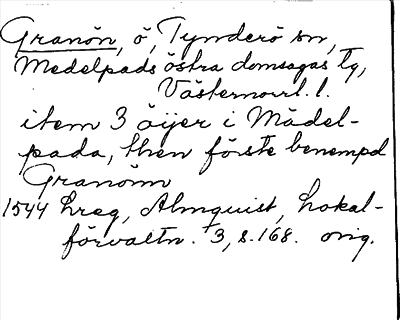 Granön, ö, Tynderö sn,
Medelpads östra domsagas tg,
Västernorrl. l.
item 3 öijer i Mädel-
pada, then förste benempd
Granönn
1544 hreg, Almquist, Lokal-
förvaltn. 3, s. 168. orig.